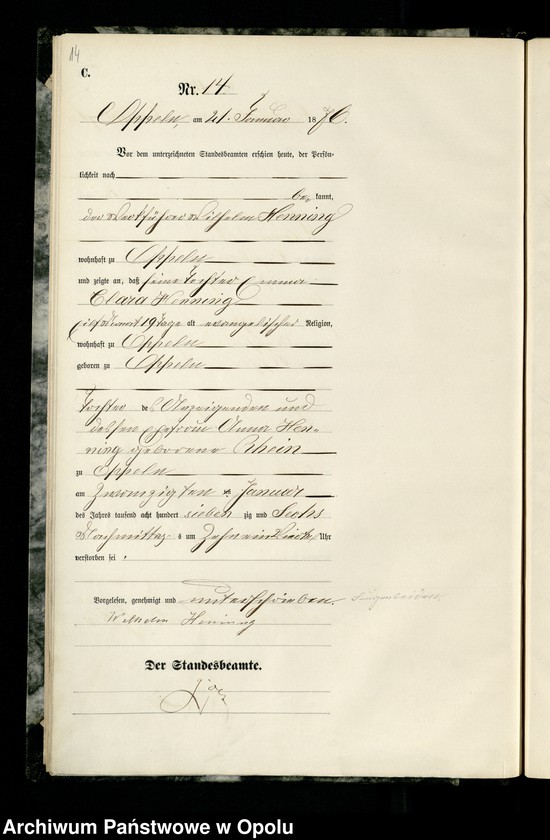 14
C.
Nr. 14.
Oppeln, am 21. Januar 1876.
Vor dem unterzeichneten Standesbeamten erschien heute, der Persön-
lichkeit nach
be kannt,
der Werkführer Wilhelm Henning
wohnhaft zu Oppeln
und zeigte an, daß seine Tochter Emma
Clara Henning
elf Monat 19 Tage alt evangelischer Religion,
wohnhaft zu Oppeln
geboren zu Oppeln
Tochter des Anzeigenden und
dessen Ehefrau Anna Hen-
ning geborene Rhein
zu Oppeln
am zwanzigsten Januar
des Jahres tausend acht hundert sieben zig und sechs
Nachmittags um zehn ein Uhr
verstorben sei.
Vorgelesen, genehmigt und unterschrieben.
Wilhelm Henning
Der Standesbeamte.
Archiwum Państwowe w Opolu